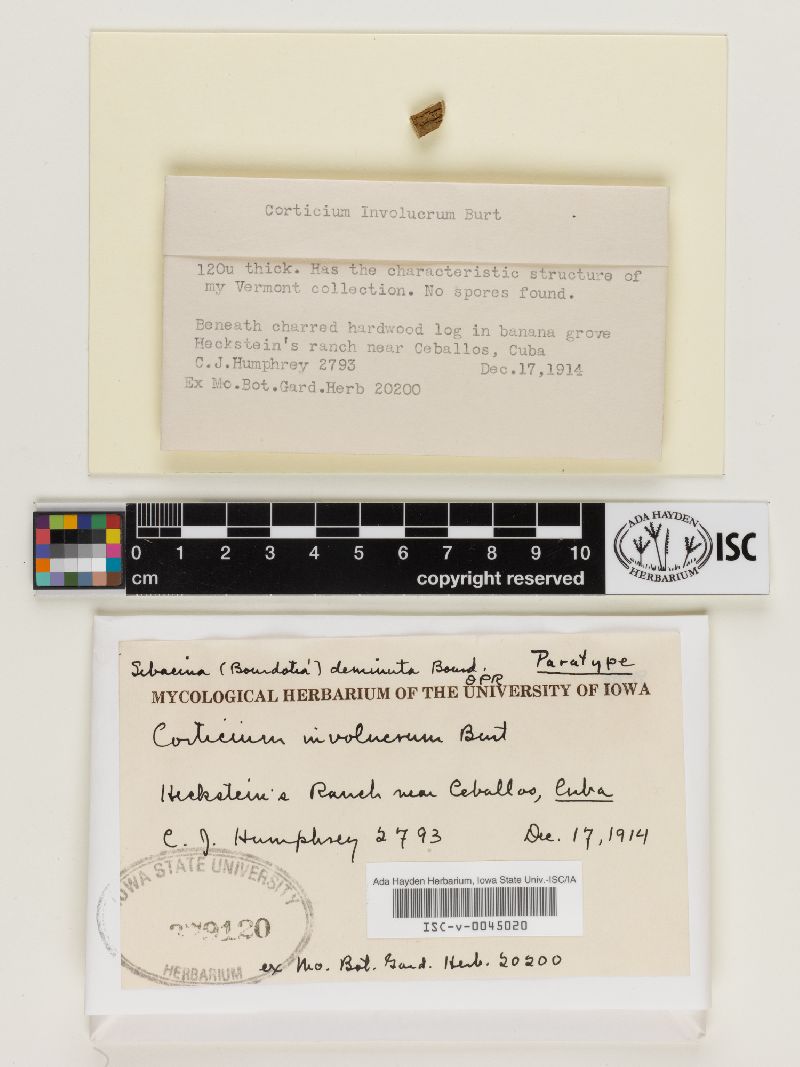 Corticium Involucrum Burt
120u thick. Has the characteristic structure of
my Vermont collection. No spores found.
Beneath charred hardwood log in banana grove
Heckstein's ranch near Ceballos, Cuba
C.J.Humphrey 2793 Dec.17,1914
Ex Mo.Bot.Gard.Herb 20200
0 1 2 3 4 5 6 7 8 9 10
cm copyright reserved
ADA HAYDEN
HERBARIUM
ISC
Sebacina (Bourdotia) deminuta Bourd. Paratype
OPR
MYCOLOGICAL HERBARIUM OF THE UNIVERSITY OF IOWA
Corticium involucrum Burt
Heckstein's Ranch near Ceballos, Cuba
C. J. Humphrey 2793 Dec. 17, 1914
IOWA STATE UNIVERSITY
HERBARIUM
Ada Hayden Herbarium, Iowa State Univ.-ISC/IA
ISC-v-0045020
ex Mo. Bot. Gard. Herb. 20200